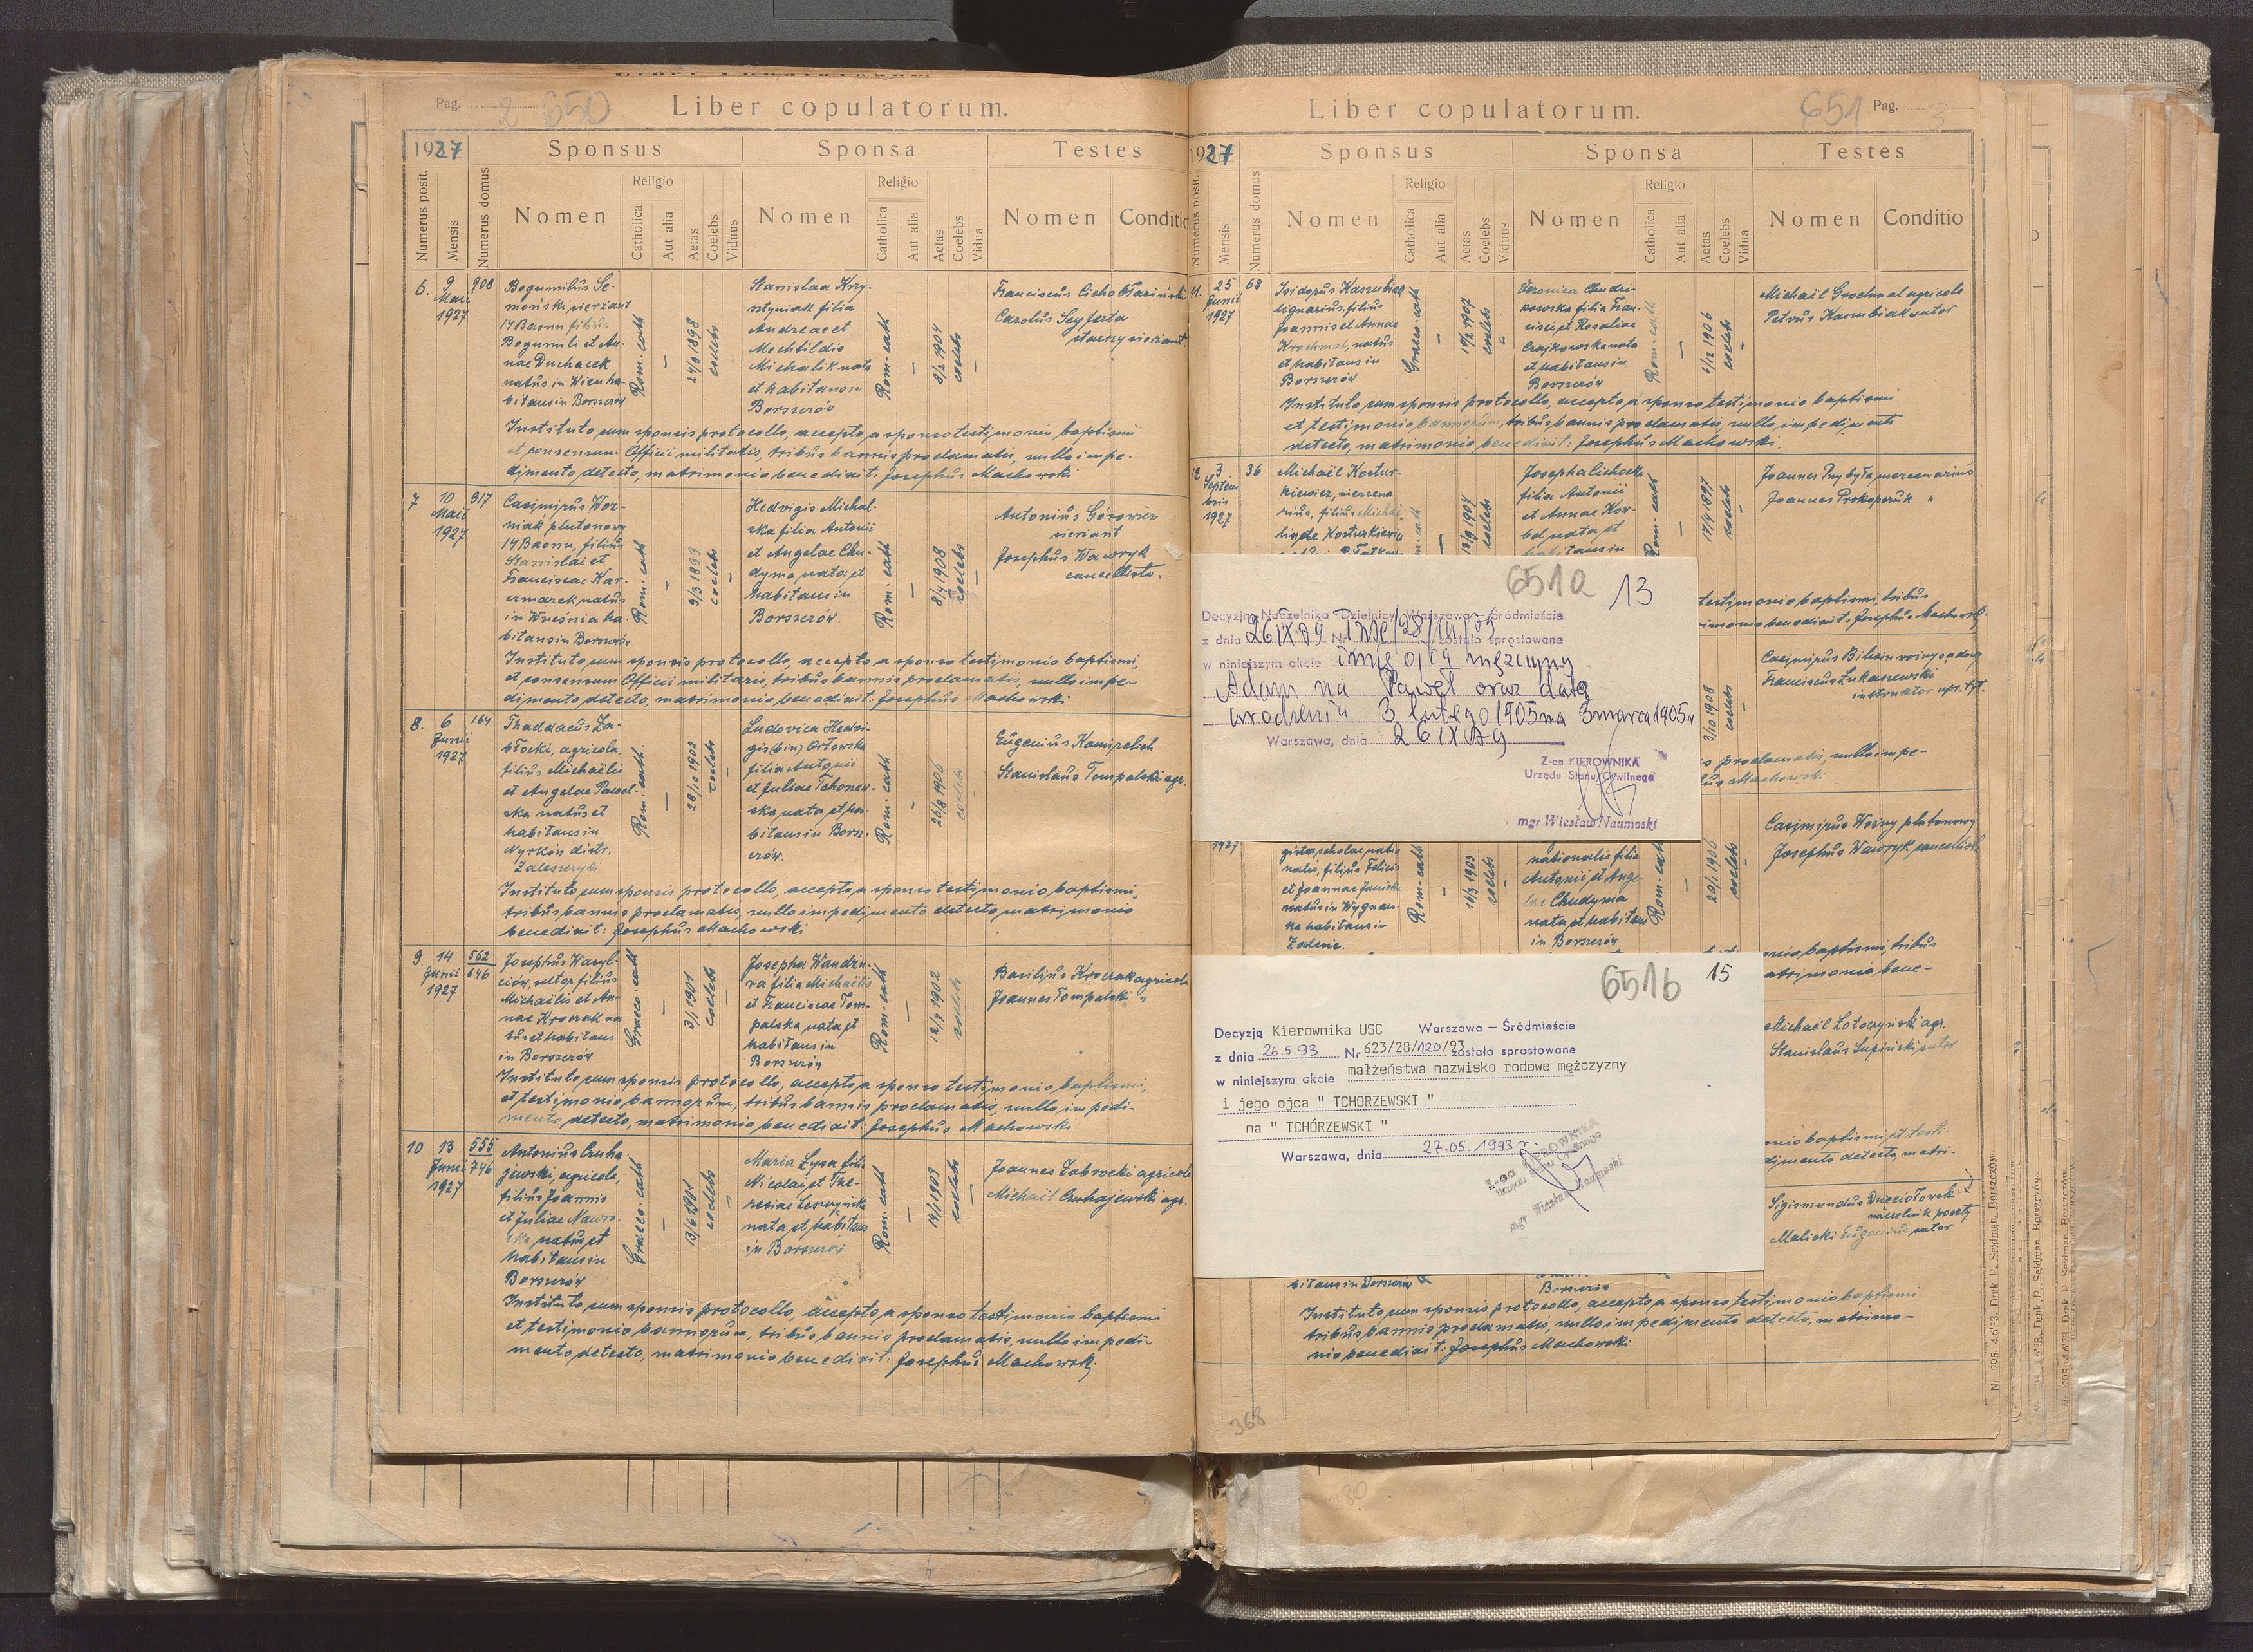 Pag. 2 650
Liber copulatorum.
1927
Sponsus
Sponsa
Testes
Numerus posit.
Mensis
Numerus domus
Nomen
Religio
Catholica
Aut alia
Aetas
Coelebs
Viduus
Nomen
Religio
Catholica
Aut alia
Aetas
Coelebs
Vidua
Nomen
Conditio
6.
9
Maii
1927
908
Bogumilus Se-
moński sierżant
14 Baonu filius
Bogumili et An-
nae Duchacek
natus in Wien ha-
bitans in Borszczów
Rom. cath
—
24/8 1898
coelebs
Stanislaa Krzy-
sztyniak filia
Andreae et
Mechtildis
Michalik nata
et habitans in
Borszczów
Rom. cath
—
8/2 1904
coelebs
—
Franciscus Cichobłaziński
Carolus Seyferta
starszy sierżant.
Instituto cum sponsis protocollo, accepto a sponso testimonio baptismi
et consensum Officii militaris, tribus bannis proclamatis, nullo impe-
dimento detecto, matrimonio benedixit: Josephus Machowski
7
10
Maii
1927
917
Casimirus Woź-
niak plutonowy
14 Baonu, filius
Stanislai et
Franciscae Kar-
czmarek natus
in Września ha-
bitans in Borszczów
Rom. cath
—
3/3 1899
coelebs
—
Hedvigis Michal-
ska filia Antonii
et Angelae Chu-
dyma nata et
habitans in
Borszczów.
Rom. cath
—
8/4 1908
coelebs
—
Antonius Górowicz
sierżant
Josephus Wawryk
cancellista.
Instituto cum sponsis protocollo, accepto a sponso testimonio baptismi,
et consensum Officii militaris, tribus bannis proclamatis, nullo impe-
dimento detecto, matrimonio benedixit: Josephus Machowski
8.
6
Junii
1927
164
Thaddaeus Za-
błocki, agricola,
filius Michaëlis
et Angelae Pawel-
ska natus et
habitans in
Nyrków distr.
Zaleszczyki
Rom. cath.
—
28/10 1902
coelebs
—
Ludovica Hedvi-
gis (bin) Orłowska
filia Antonii
et Juliae Tchorzew-
ska nata et ha-
bitans in Borsz-
czów.
Rom. cath
—
26/8 1906
coelebs
Eugenius Kamirelich
Stanislaus Tompalski agr.
Instituto cum sponsis protocollo, accepto a sponso testimonio baptismi,
tribus bannis proclamatis, nullo impedimento detecto matrimonio
benedixit: Josephus Machowski
9.
14
Junii
1927
562
646
Josephus Wasyl-
ciów, sutor filius
Michaëlis et An-
nae Kroczak na-
tus et habitans
in Borszczów
Graeco. cath
—
3/1 1901
coelebs
—
Josepha Wandziu-
ra filia Michaëlis
et Franciscae Tom-
palska nata et
habitans in
Borszczów
Rom. cath
—
12/7 1902
coelebs
Basilius Kroczak agricola
Joannes Tompalski "
Instituto cum sponsis protocollo, accepto a sponso testimonio baptismi,
et testimonio bannorum, tribus bannis proclamatis, nullo impedi-
mento detecto, matrimonio benedixit: Josephus Machowski
10
13
Junii
1927
555
746
Antonius Czuha-
jewski, agricola,
filius Joannis
et Juliae Nawro-
cka natus et
habitans in
Borszczów
Graeco. cath
—
13/6 1901
coelebs
—
Maria Łysa filia
Nicolai et The-
resiae Leszczyńska
nata et habitans
in Borszczów
Rom. cath
—
14/1 1909
coelebs
—
Joannes Zabrocki agricola
Michaël Czuhajewski agr.
Instituto cum sponsis protocollo, accepto a sponso testimonio baptismi
et testimonio bannorum, tribus bannis proclamatis, nullo impedi-
mento detecto, matrimonio benedixit: Josephus Machowski
Liber copulatorum.
651 Pag. 3
1927
Sponsus
Sponsa
Testes
Numerus posit.
Mensis
Numerus domus
Nomen
Religio
Catholica
Aut alia
Aetas
Coelebs
Viduus
Nomen
Religio
Catholica
Aut alia
Aetas
Coelebs
Vidua
Nomen
Conditio
11.
25
Junii
1927
68
Isidorus Kaszubiak
lignarius, filius
Joannis et Annae
Krochmal, natus
et habitans in
Borszczów
Graeco. cath
—
10/2 1907
coelebs
Veronica Chudzi-
kowska filia Fran-
cisci et Rosaliae
Czajkowska nata
et habitans in
Borszczów
Rom. cath
—
6/12 1906
coelebs
—
Michaël Grochmal agricola
Petrus Kaszubiak sutor
Instituto cum sponsis protocollo, accepto a sponso testimonio baptismi
et testimonio bannorum, tribus bannis proclamatis, nullo impedimento
detecto, matrimonio benedixit: Josephus Machowski.
12
3
Septem
bris
1927
36
Michaël Kostur-
kiewicz, mercena-
rius, filius Michaë-
linae Kosturkiewicz
13/9 1904
coelebs
Josepha Cichocka
filia Antonii
et Annae Kor-
bel nata et
habitans in
Rom. cath
—
17/4 1897
coelebs
Joannes Przybyła mercenarius
Joannes Prokopczuk "
testimonio baptismi, tribus
rimonio benedixit: Josephus Machowski.
651a 13
Decyzją Naczelnika Dzielnicy Warszawa - Śródmieście
z dnia 26 IX 89 Nr zostało sprostowane
w niniejszym akcie imię ojca mężczyzny
Adam na Paweł oraz datę
urodzenia 3 lutego 1905 na 3 marca 1905 r
Warszawa, dnia 26 IX 89
Z-ca KIEROWNIKA
Urzędu Stanu Cywilnego
mgr Wiesław Naumoski
3/10 1908
coelebs
Casimirus Bilwin woźny sądowy
Franciscus Łukaszewski
instruktor
proclamatis, nullo impe-
Machowski
1927
gister scholae natio
nalis, filius Felicis
et Joannae Janicka
natus in Wygnan-
ka habitans in
Zalesie.
Rom. cath
—
16/3 1903
coelebs
nationalis filia
Antonii et Ange-
lae Chudyma
nata et habitans
in Borszczów
Rom. cath
—
20/1 1906
coelebs
Casimirus Woźny plutonowy
Josephus Wawryk cancellista
baptismi, tribus
atrimonio bene-
651b 15
Decyzją Kierownika USC Warszawa — Śródmieście
z dnia 26.5.93 Nr 623/28/120/93 zostało sprostowane
w niniejszym akcie małżeństwa nazwisko rodowe mężczyzny
i jego ojca " TCHORZEWSKI "
na " TCHÓRZEWSKI "
Warszawa, dnia 27.05.1993 r.
Z-ca KIEROWNIKA
Urzędu Stanu Cywilnego
mgr Wiesław Naumoski
Michaël Łotoczyński agr.
Stanislaus Lupiński sutor
baptismi et testi-
dimento detecto, matri-
Sigismundus Dzieciołowski
naczelnik poczty
Malicki Eugenius sutor
bitans in Borszczów
Borszczów
Instituto cum sponsis protocollo, accepto a sponso testimonio baptismi
tribus bannis proclamatis, nullo impedimento detecto, matrimo-
nio benedixit: Josephus Machowski
368
380
Druk. P. Seidman, Borszczów.